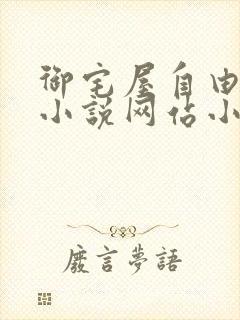 御宅屋自由
小说网站小
廢言夢語